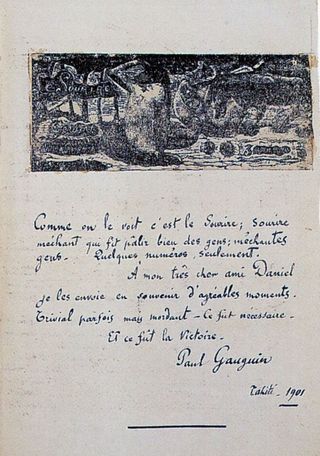 Comme on le voit c'est le Sourire; sourire
méchant qui fit pâlir bien des gens; méchantes
gens. Quelques numéros, seulement.
A mon très cher ami Daniel
je les envoie en souvenir d'agréables moments.
Trivial parfois mais mordant - Ce fut nécessaire.
Et ce fût la Victoire.
Paul Gauguin
Tahiti - 1901